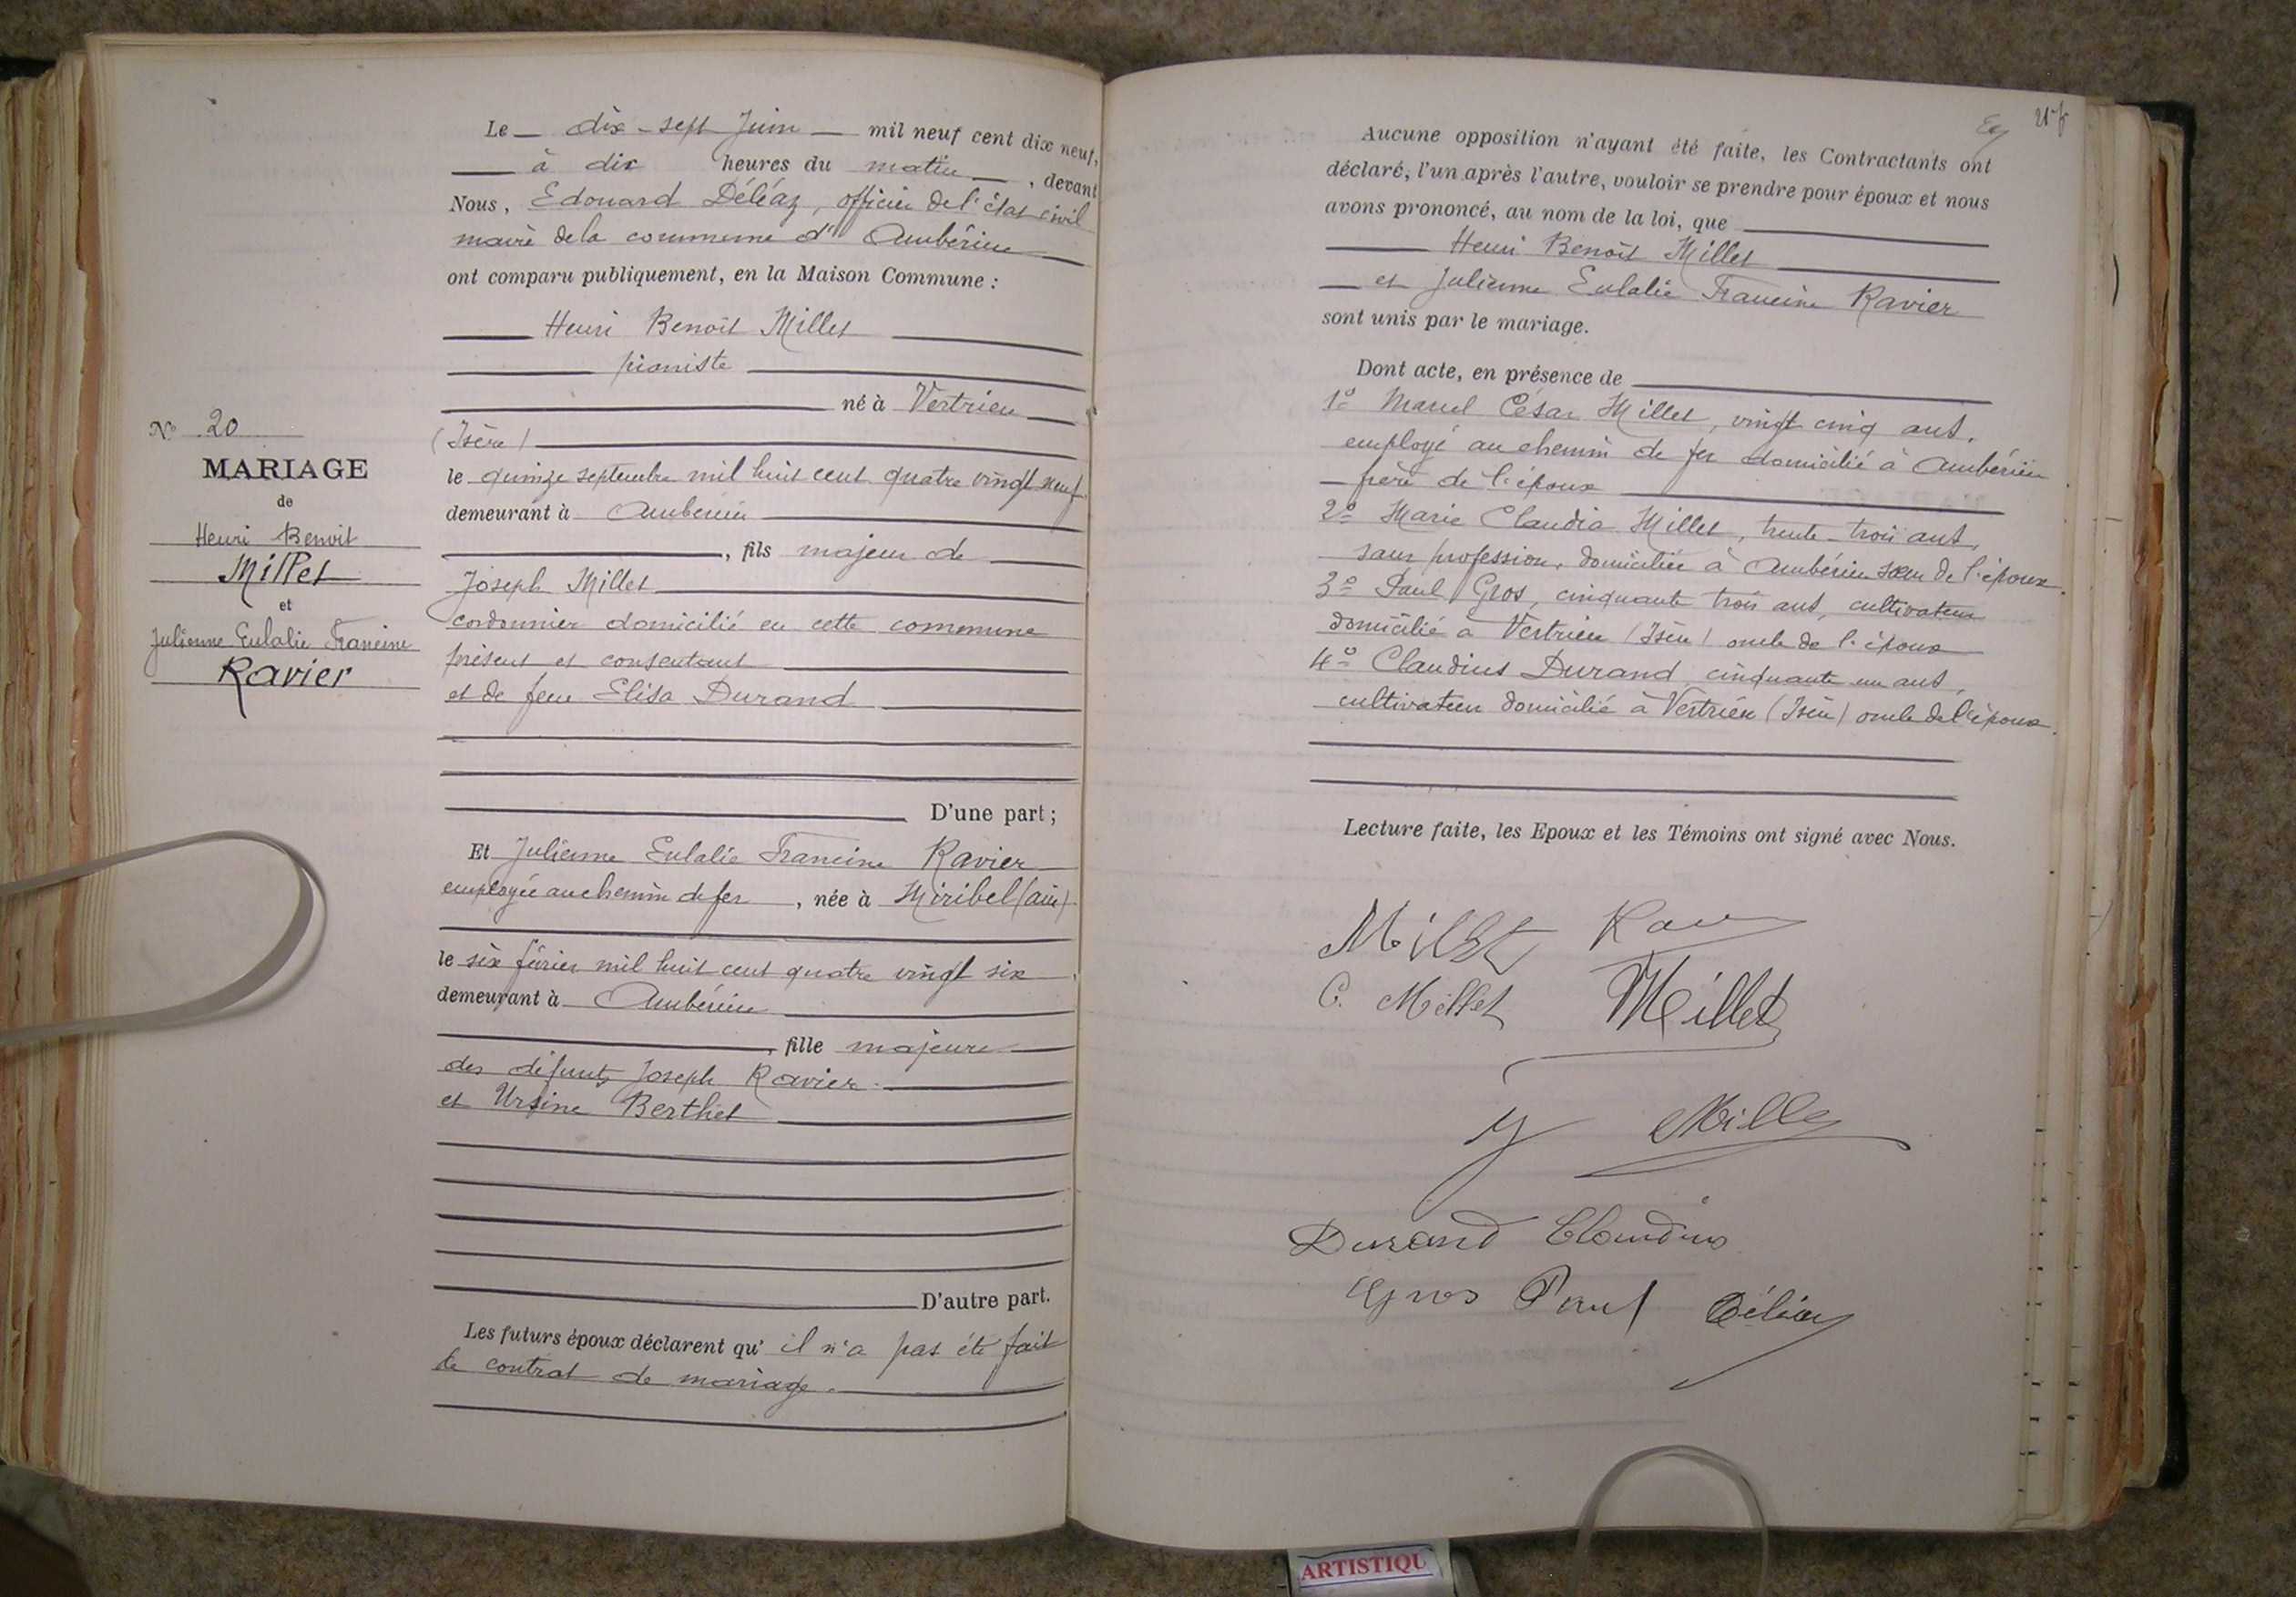 Nº 20
MARIAGE
de
Henri Benoit
Millet
et
Julienne Eulalie Francine
Ravier
Le dix-sept Juin mil neuf cent dix neuf,
à dix heures du matin, devant
Nous, Edouard Déléaz, officier de l'état civil
maire de la commune d'Ambérieu
ont comparu publiquement, en la Maison Commune :
Henri Benoît Millet
pianiste
né à Vertrieu
(Isère)
le quinze septembre mil huit cent quatre vingt neuf
demeurant à Ambérieu
, fils majeur de
Joseph Millet
cordonnier domicilié en cette commune
présent et consentant
et de feue Elisa Durand
D'une part ;
Et Julienne Eulalie Francine Ravier
employée au chemin de fer, née à Miribel (ain)
le six février mil huit cent quatre vingt six,
demeurant à Ambérieu
, fille majeure
des défunts Joseph Ravier
et Ursine Berthet
D'autre part.
Les futurs époux déclarent qu'il n'a pas été fait
de contrat de mariage.
Aucune opposition n'ayant été faite, les Contractants ont
déclaré, l'un après l'autre, vouloir se prendre pour époux et nous
avons prononcé, au nom de la loi, que
Henri Benoît Millet
et Julienne Eulalie Francine Ravier
sont unis par le mariage.
Dont acte, en présence de
1º Marcel César Millet, vingt cinq ans,
employé au chemin de fer domicilié à Ambérieu
frère de l'époux
2º Marie Claudia Millet, trente-trois ans,
sans profession, domiciliée à Ambérieu sœur de l'époux.
3º Paul Gros, cinquante trois ans, cultivateur
domicilié à Vertrieu (Isère) oncle de l'époux
4º Claudius Durand, cinquante un ans,
cultivateur domicilié à Vertrieu (Isère) oncle de l'époux.
Lecture faite, les Epoux et les Témoins ont signé avec Nous.
Millet
C. Millet Millet
J Millet
Durand Claudius
Gros Paul Déléaz
ARTISTIQU